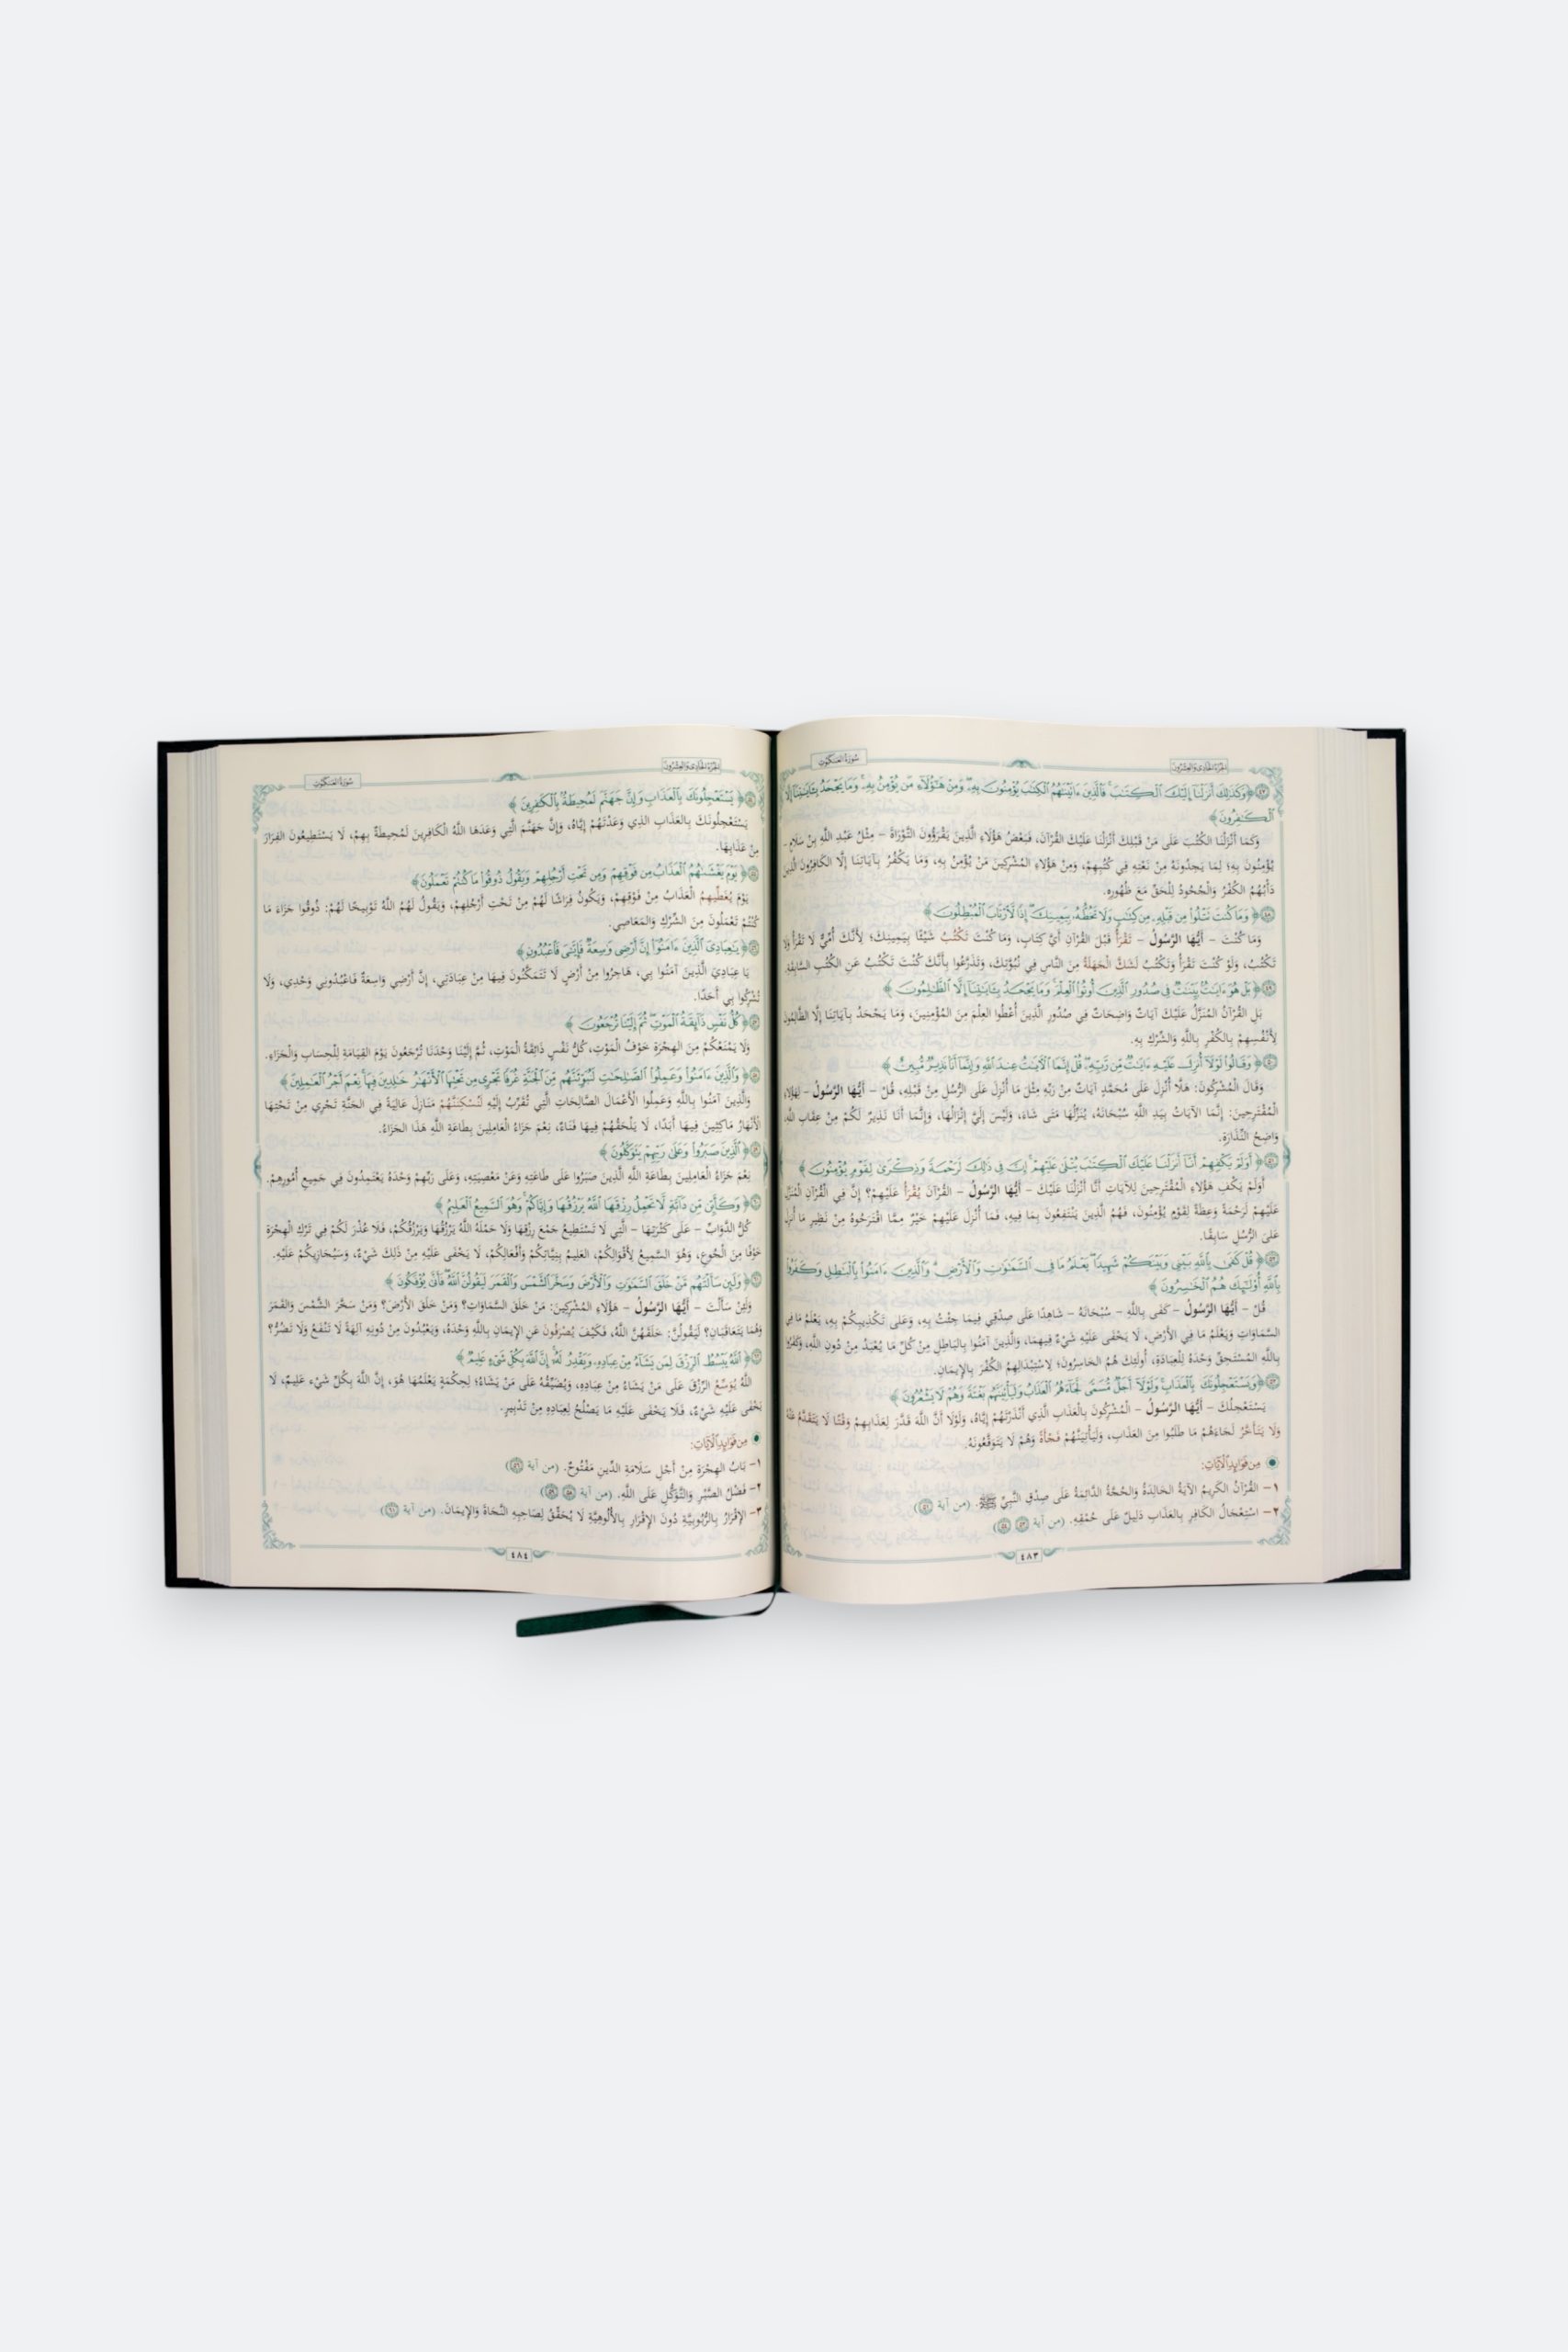 الجزء الحادي والعشرون
سورة العنكبوت
﴿٤٧﴾ ﴿وَكَذَٰلِكَ أَنزَلْنَآ إِلَيْكَ ٱلْكِتَٰبَ ۚ فَٱلَّذِينَ ءَاتَيْنَٰهُمُ ٱلْكِتَٰبَ يُؤْمِنُونَ بِهِۦ ۖ وَمِنْ هَٰٓؤُلَآءِ مَن يُؤْمِنُ بِهِۦ ۚ وَمَا يَجْحَدُ بِـَٔايَٰتِنَآ إِلَّا
ٱلْكَٰفِرُونَ﴾
وَكَمَا أَنْزَلْنَا الكُتُبَ عَلَى مَنْ قَبْلِكَ أَنْزَلْنَا عَلَيْكَ القُرْآنَ، فَبَعْضُ هَؤُلَاءِ الَّذِينَ يَقْرَؤُونَ التَّوْرَاةَ – مِثْلُ عَبْدِ اللَّهِ بْنِ سَلَامٍ –
يُؤْمِنُونَ بِهِ؛ لِمَا يَجِدُونَهُ مِنْ نَعْتِهِ فِي كُتُبِهِمْ، وَمِنْ هَؤُلَاءِ المُشْرِكِينَ مَنْ يُؤْمِنُ بِهِ، وَمَا يَكْفُرُ بِآيَاتِنَا إِلَّا الكَافِرُونَ الَّذِينَ
دَأْبُهُمُ الكُفْرُ وَالْجُحُودُ لِلْحَقِّ مَعَ ظُهُورِهِ.
﴿٤٨﴾ ﴿وَمَا كُنتَ تَتْلُوا۟ مِن قَبْلِهِۦ مِن كِتَٰبٍ وَلَا تَخُطُّهُۥ بِيَمِينِكَ ۖ إِذًا لَّٱرْتَابَ ٱلْمُبْطِلُونَ﴾
وَمَا كُنْتَ – أَيُّهَا الرَّسُولُ – تَقْرَأُ قَبْلَ القُرْآنِ أَيَّ كِتَابٍ، وَمَا كُنْتَ تَكْتُبُ شَيْئًا بِيَمِينِكَ؛ لِأَنَّكَ أُمِّيٌّ لَا تَقْرَأُ وَلَا
تَكْتُبُ، وَلَوْ كُنْتَ تَقْرَأُ وَتَكْتُبُ لَشَكَّ الْجَهَلَةُ مِنَ النَّاسِ فِي نُبُوَّتِكَ، وَتَذَرَّعُوا بِأَنَّكَ كُنْتَ تَكْتُبُ عَنِ الكُتُبِ السَّابِقَةِ.
﴿٤٩﴾ ﴿بَلْ هُوَ ءَايَٰتٌۢ بَيِّنَٰتٌ فِى صُدُورِ ٱلَّذِينَ أُوتُوا۟ ٱلْعِلْمَ ۚ وَمَا يَجْحَدُ بِـَٔايَٰتِنَآ إِلَّا ٱلظَّٰلِمُونَ﴾
بَلِ القُرْآنُ المُنَزَّلُ عَلَيْكَ آيَاتٌ وَاضِحَاتٌ فِي صُدُورِ الَّذِينَ أُعْطُوا العِلْمَ مِنَ المُؤْمِنِينَ، وَمَا يَجْحَدُ بِآيَاتِنَا إِلَّا الظَّالِمُونَ
لِأَنْفُسِهِمْ بِالكُفْرِ بِاللَّهِ وَالشِّرْكِ بِهِ.
﴿٥٠﴾ ﴿وَقَالُوا۟ لَوْلَآ أُنزِلَ عَلَيْهِ ءَايَٰتٌ مِّن رَّبِّهِۦ ۖ قُلْ إِنَّمَا ٱلْـَٔايَٰتُ عِندَ ٱللَّهِ وَإِنَّمَآ أَنَا۠ نَذِيرٌ مُّبِينٌ﴾
وَقَالَ الْمُشْرِكُونَ: هَلَّا أُنْزِلَ عَلَى مُحَمَّدٍ آيَاتٌ مِنْ رَبِّهِ مِثْلَ مَا أُنْزِلَ عَلَى الرُّسُلِ مِنْ قَبْلِهِ، قُلْ – أَيُّهَا الرَّسُولُ – لِهَؤُلَاءِ
الْمُقْتَرِحِينَ: إِنَّمَا الآيَاتُ بِيَدِ اللَّهِ سُبْحَانَهُ، يُنَزِّلُهَا مَتَى شَاءَ، وَلَيْسَ إِلَيَّ إِنْزَالُهَا، وَإِنَّمَا أَنَا نَذِيرٌ لَكُمْ مِنْ عِقَابِ اللَّهِ
وَاضِحُ النِّذَارَةِ.
﴿٥١﴾ ﴿أَوَلَمْ يَكْفِهِمْ أَنَّآ أَنزَلْنَا عَلَيْكَ ٱلْكِتَٰبَ يُتْلَىٰ عَلَيْهِمْ ۚ إِنَّ فِى ذَٰلِكَ لَرَحْمَةً وَذِكْرَىٰ لِقَوْمٍ يُؤْمِنُونَ﴾
أَوَلَمْ يَكْفِ هَؤُلَاءِ الْمُقْتَرِحِينَ لِلآيَاتِ أَنَّا أَنْزَلْنَا عَلَيْكَ – أَيُّهَا الرَّسُولُ – القُرْآنَ يُقْرَأُ عَلَيْهِمْ؟ إِنَّ فِي القُرْآنِ الْمُنَزَّلِ
عَلَيْهِمْ لَرَحْمَةً وَعِظَةً لِقَوْمٍ يُؤْمِنُونَ، فَهُمُ الَّذِينَ يَنْتَفِعُونَ بِمَا فِيهِ، فَمَا أُنْزِلَ عَلَيْهِمْ خَيْرٌ مِمَّا اقْتَرَحُوهُ مِنْ نَظِيرِ مَا أُنْزِلَ
عَلَى الرُّسُلِ سَابِقًا.
﴿٥٢﴾ ﴿قُلْ كَفَىٰ بِٱللَّهِ بَيْنِى وَبَيْنَكُمْ شَهِيدًا ۖ يَعْلَمُ مَا فِى ٱلسَّمَٰوَٰتِ وَٱلْأَرْضِ ۗ وَٱلَّذِينَ ءَامَنُوا۟ بِٱلْبَٰطِلِ وَكَفَرُوا۟
بِٱللَّهِ أُو۟لَٰٓئِكَ هُمُ ٱلْخَٰسِرُونَ﴾
قُلْ – أَيُّهَا الرَّسُولُ – كَفَى بِاللَّهِ – سُبْحَانَهُ – شَاهِدًا عَلَى صِدْقِي فِيمَا جِئْتُ بِهِ، وَعَلَى تَكْذِيبِكُمْ بِهِ، يَعْلَمُ مَا فِي
السَّمَاوَاتِ وَيَعْلَمُ مَا فِي الأَرْضِ، لَا يَخْفَى عَلَيْهِ شَيْءٌ فِيهِمَا، وَالَّذِينَ آمَنُوا بِالبَاطِلِ مِنْ كُلِّ مَا يُعْبَدُ مِنْ دُونِ اللَّهِ، وَكَفَرُوا
بِاللَّهِ المُسْتَحِقِّ وَحْدَهُ لِلْعِبَادَةِ، أُولَئِكَ هُمُ الخَاسِرُونَ؛ لِاسْتِبْدَالِهِمُ الكُفْرَ بِالإِيمَانِ.
﴿٥٣﴾ ﴿وَيَسْتَعْجِلُونَكَ بِٱلْعَذَابِ ۚ وَلَوْلَآ أَجَلٌ مُّسَمًّى لَّجَآءَهُمُ ٱلْعَذَابُ وَلَيَأْتِيَنَّهُم بَغْتَةً وَهُمْ لَا يَشْعُرُونَ﴾
يَسْتَعْجِلُكَ – أَيُّهَا الرَّسُولُ – الْمُشْرِكُونَ بِالْعَذَابِ الَّذِي أَنْذَرْتَهُمْ إِيَّاهُ، وَلَوْلَا أَنَّ اللَّهَ قَدَّرَ لِعَذَابِهِمْ وَقْتًا لَا يَتَقَدَّمُ عَنْهُ
وَلَا يَتَأَخَّرُ لَجَاءَهُمْ مَا طَلَبُوا مِنَ العَذَابِ، وَلَيَأْتِيَنَّهُمْ فَجْأَةً وَهُمْ لَا يَتَوَقَّعُونَهُ.
من فوائد الآيات:
١– القُرْآنُ الكَرِيمُ الآيَةُ الخَالِدَةُ وَالحُجَّةُ الدَّائِمَةُ عَلَى صِدْقِ النَّبِيِّ ﷺ. (من آية ٥١)
٢– اسْتِعْجَالُ الكَافِرِ بِالعَذَابِ دَلِيلٌ عَلَى حُمْقِهِ. (من آية ٥٣ ٥٤)
٤٨٣
الجزء الحادي والعشرون
سورة العنكبوت
﴿٥٤﴾ ﴿يَسْتَعْجِلُونَكَ بِٱلْعَذَابِ وَإِنَّ جَهَنَّمَ لَمُحِيطَةٌۢ بِٱلْكَٰفِرِينَ﴾
يَسْتَعْجِلُونَكَ بِالعَذَابِ الذِي وَعَدْتَهُمْ إِيَّاهُ، وَإِنَّ جَهَنَّمَ الَّتِي وَعَدَهَا اللَّهُ الْكَافِرِينَ لَمُحِيطَةٌ بِهِمْ، لَا يَسْتَطِيعُونَ الفِرَارَ
مِنْ عَذَابِهَا.
﴿٥٥﴾ ﴿يَوْمَ يَغْشَىٰهُمُ ٱلْعَذَابُ مِن فَوْقِهِمْ وَمِن تَحْتِ أَرْجُلِهِمْ وَيَقُولُ ذُوقُوا۟ مَا كُنتُمْ تَعْمَلُونَ﴾
يَوْمَ يُغَطِّيهِمُ الْعَذَابُ مِنْ فَوْقِهِمْ، وَيَكُونُ فِرَاشًا لَهُمْ مِنْ تَحْتِ أَرْجُلِهِمْ، وَيَقُولُ لَهُمُ اللَّهُ تَوْبِيخًا لَهُمْ: ذُوقُوا جَزَاءَ مَا
كُنْتُمْ تَعْمَلُونَ مِنَ الشِّرْكِ وَالمَعَاصِي.
﴿٥٦﴾ ﴿يَٰعِبَادِىَ ٱلَّذِينَ ءَامَنُوٓا۟ إِنَّ أَرْضِى وَٰسِعَةٌ فَإِيَّٰىَ فَٱعْبُدُونِ﴾
يَا عِبَادِيَ الَّذِينَ آمَنُوا بِي، هَاجِرُوا مِنْ أَرْضٍ لَا تَتَمَكَّنُونَ فِيهَا مِنْ عِبَادَتِي، إِنَّ أَرْضِي وَاسِعَةٌ فَاعْبُدُونِي وَحْدِي، وَلَا
تُشْرِكُوا بِي أَحَدًا.
﴿٥٧﴾ ﴿كُلُّ نَفْسٍ ذَآئِقَةُ ٱلْمَوْتِ ۖ ثُمَّ إِلَيْنَا تُرْجَعُونَ﴾
وَلَا يَمْنَعْكُمْ مِنَ الهِجْرَةِ خَوْفُ الْمَوْتِ، كُلُّ نَفْسٍ ذَائِقَةُ الْمَوْتِ، ثُمَّ إِلَيْنَا وَحْدَنَا تُرْجَعُونَ يَوْمَ القِيَامَةِ لِلْحِسَابِ وَالْجَزَاءِ.
﴿٥٨﴾ ﴿وَٱلَّذِينَ ءَامَنُوا۟ وَعَمِلُوا۟ ٱلصَّٰلِحَٰتِ لَنُبَوِّئَنَّهُم مِّنَ ٱلْجَنَّةِ غُرَفًا تَجْرِى مِن تَحْتِهَا ٱلْأَنْهَٰرُ خَٰلِدِينَ فِيهَا ۚ نِعْمَ أَجْرُ ٱلْعَٰمِلِينَ﴾
وَالَّذِينَ آمَنُوا بِاللَّهِ وَعَمِلُوا الْأَعْمَالَ الصَّالِحَاتِ الَّتِي تُقَرِّبُ إِلَيْهِ لَنُسْكِنَنَّهُمْ مَنَازِلَ عَالِيَةً فِي الجَنَّةِ تَجْرِي مِنْ تَحْتِهَا
الْأَنْهَارُ مَاكِثِينَ فِيهَا أَبَدًا، لَا يَلْحَقُهُمْ فِيهَا فَنَاءٌ، نِعْمَ جَزَاءُ الْعَامِلِينَ بِطَاعَةِ اللَّهِ هَذَا الجَزَاءُ.
﴿٥٩﴾ ﴿ٱلَّذِينَ صَبَرُوا۟ وَعَلَىٰ رَبِّهِمْ يَتَوَكَّلُونَ﴾
نِعْمَ جَزَاءُ الْعَامِلِينَ بِطَاعَةِ اللَّهِ الَّذِينَ صَبَرُوا عَلَى طَاعَتِهِ وَعَنْ مَعْصِيَتِهِ، وَعَلَى رَبِّهِمْ وَحْدَهُ يَعْتَمِدُونَ فِي جَمِيعِ أُمُورِهِمْ.
﴿٦٠﴾ ﴿وَكَأَيِّن مِّن دَآبَّةٍ لَّا تَحْمِلُ رِزْقَهَا ٱللَّهُ يَرْزُقُهَا وَإِيَّاكُمْ ۚ وَهُوَ ٱلسَّمِيعُ ٱلْعَلِيمُ﴾
كُلُّ الدَّوَابِّ – عَلَى كَثْرَتِهَا – الَّتِي لَا تَسْتَطِيعُ جَمْعَ رِزْقِهَا وَلَا حَمْلَهُ اللَّهُ يَرْزُقُهَا وَيَرْزُقُكُمْ، فَلَا عُذْرَ لَكُمْ فِي تَرْكِ الْهِجْرَةِ
خَوْفًا مِنَ الْجُوعِ، وَهُوَ السَّمِيعُ لِأَقْوَالِكُمْ، العَلِيمُ بِنِيَّاتِكُمْ وَأَفْعَالِكُمْ، لَا يَخْفَى عَلَيْهِ مِنْ ذَلِكَ شَيْءٌ، وَسَيُجَازِيكُمْ عَلَيْهِ.
﴿٦١﴾ ﴿وَلَئِن سَأَلْتَهُم مَّنْ خَلَقَ ٱلسَّمَٰوَٰتِ وَٱلْأَرْضَ وَسَخَّرَ ٱلشَّمْسَ وَٱلْقَمَرَ لَيَقُولُنَّ ٱللَّهُ ۖ فَأَنَّىٰ يُؤْفَكُونَ﴾
وَلَئِنْ سَأَلْتَ – أَيُّهَا الرَّسُولُ – هَؤُلَاءِ المُشْرِكِينَ: مَنْ خَلَقَ السَّمَاوَاتِ؟ وَمَنْ خَلَقَ الأَرْضَ؟ وَمَنْ سَخَّرَ الشَّمْسَ وَالقَمَرَ
وَهُمَا يَتَعَاقَبَانِ؟ لَيَقُولُنَّ: خَلَقَهُنَّ اللَّهُ، فَكَيْفَ يُصْرَفُونَ عَنِ الإِيمَانِ بِاللَّهِ وَحْدَهُ، وَيَعْبُدُونَ مِنْ دُونِهِ آلِهَةً لَا تَنْفَعُ وَلَا تَضُرُّ؟
﴿٦٢﴾ ﴿ٱللَّهُ يَبْسُطُ ٱلرِّزْقَ لِمَن يَشَآءُ مِنْ عِبَادِهِۦ وَيَقْدِرُ لَهُۥٓ ۚ إِنَّ ٱللَّهَ بِكُلِّ شَىْءٍ عَلِيمٌ﴾
اللَّهُ يُوَسِّعُ الرِّزْقَ عَلَى مَنْ يَشَاءُ مِنْ عِبَادِهِ، وَيُضَيِّقُهُ عَلَى مَنْ يَشَاءُ؛ لِحِكْمَةٍ يَعْلَمُهَا هُوَ، إِنَّ اللَّهَ بِكُلِّ شَيْءٍ عَلِيمٌ، لَا
يَخْفَى عَلَيْهِ شَيْءٌ، فَلَا يَخْفَى عَلَيْهِ مَا يَصْلُحُ لِعِبَادِهِ مِنْ تَدْبِيرٍ.
من فوائد الآيات:
١– بَابُ الهِجْرَةِ مِنْ أَجْلِ سَلَامَةِ الدِّينِ مَفْتُوحٌ. (من آية ٥٦)
٢– فَضْلُ الصَّبْرِ وَالتَّوَكُّلِ عَلَى اللَّهِ. (من آية ٥٨ ٥٩)
٣– الإِقْرَارُ بِالرُّبُوبِيَّةِ دُونَ الإِقْرَارِ بِالأُلُوهِيَّةِ لَا يُحَقِّقُ لِصَاحِبِهِ النَّجَاةَ وَالإِيمَانَ. (من آية ٦١)
٤٨٤